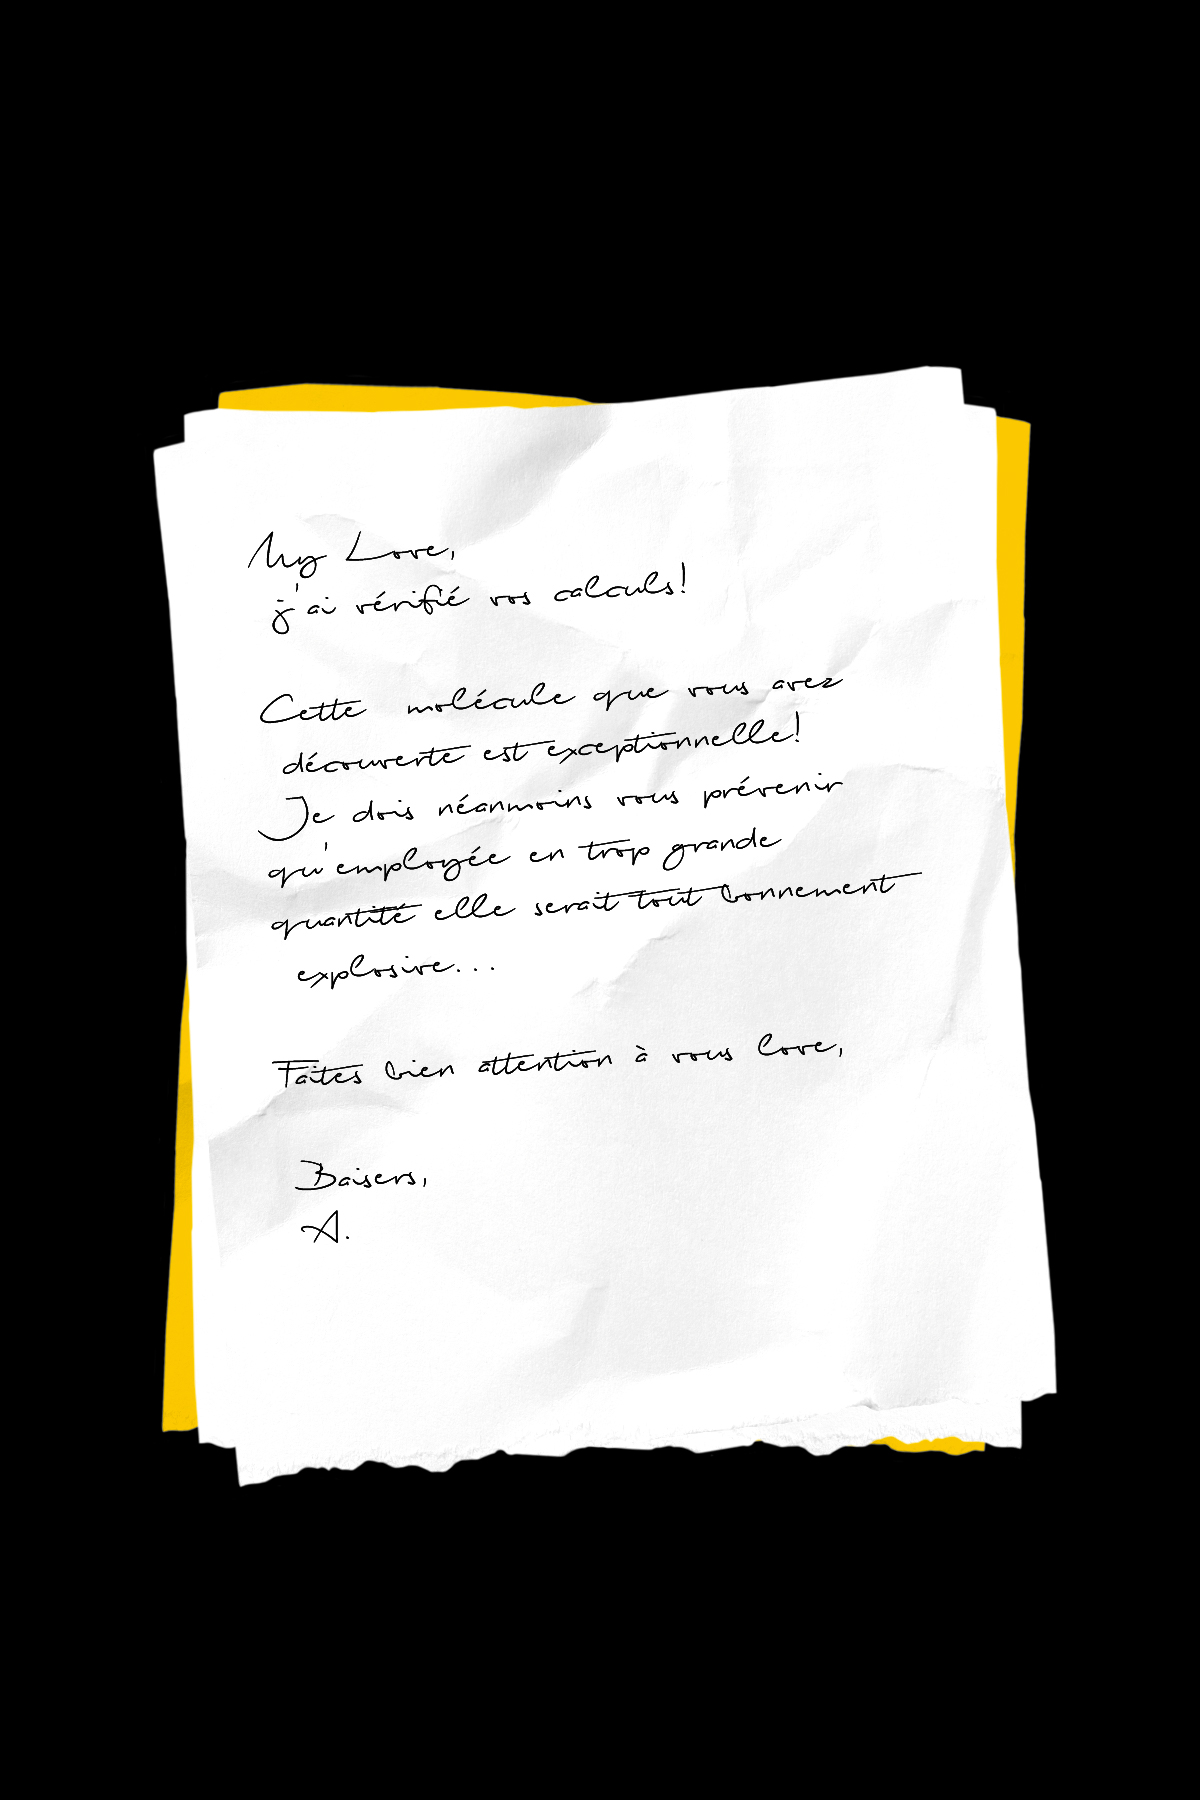 My Love,
j'ai vérifié vos calculs!
Cette molécule que vous avez
découverte est exceptionnelle!
Je dois néanmoins vous prévenir
qu'employée en trop grande
quantité elle serait tout bonnement
explosive...
Faites bien attention à vous love,
Baisers,
A.